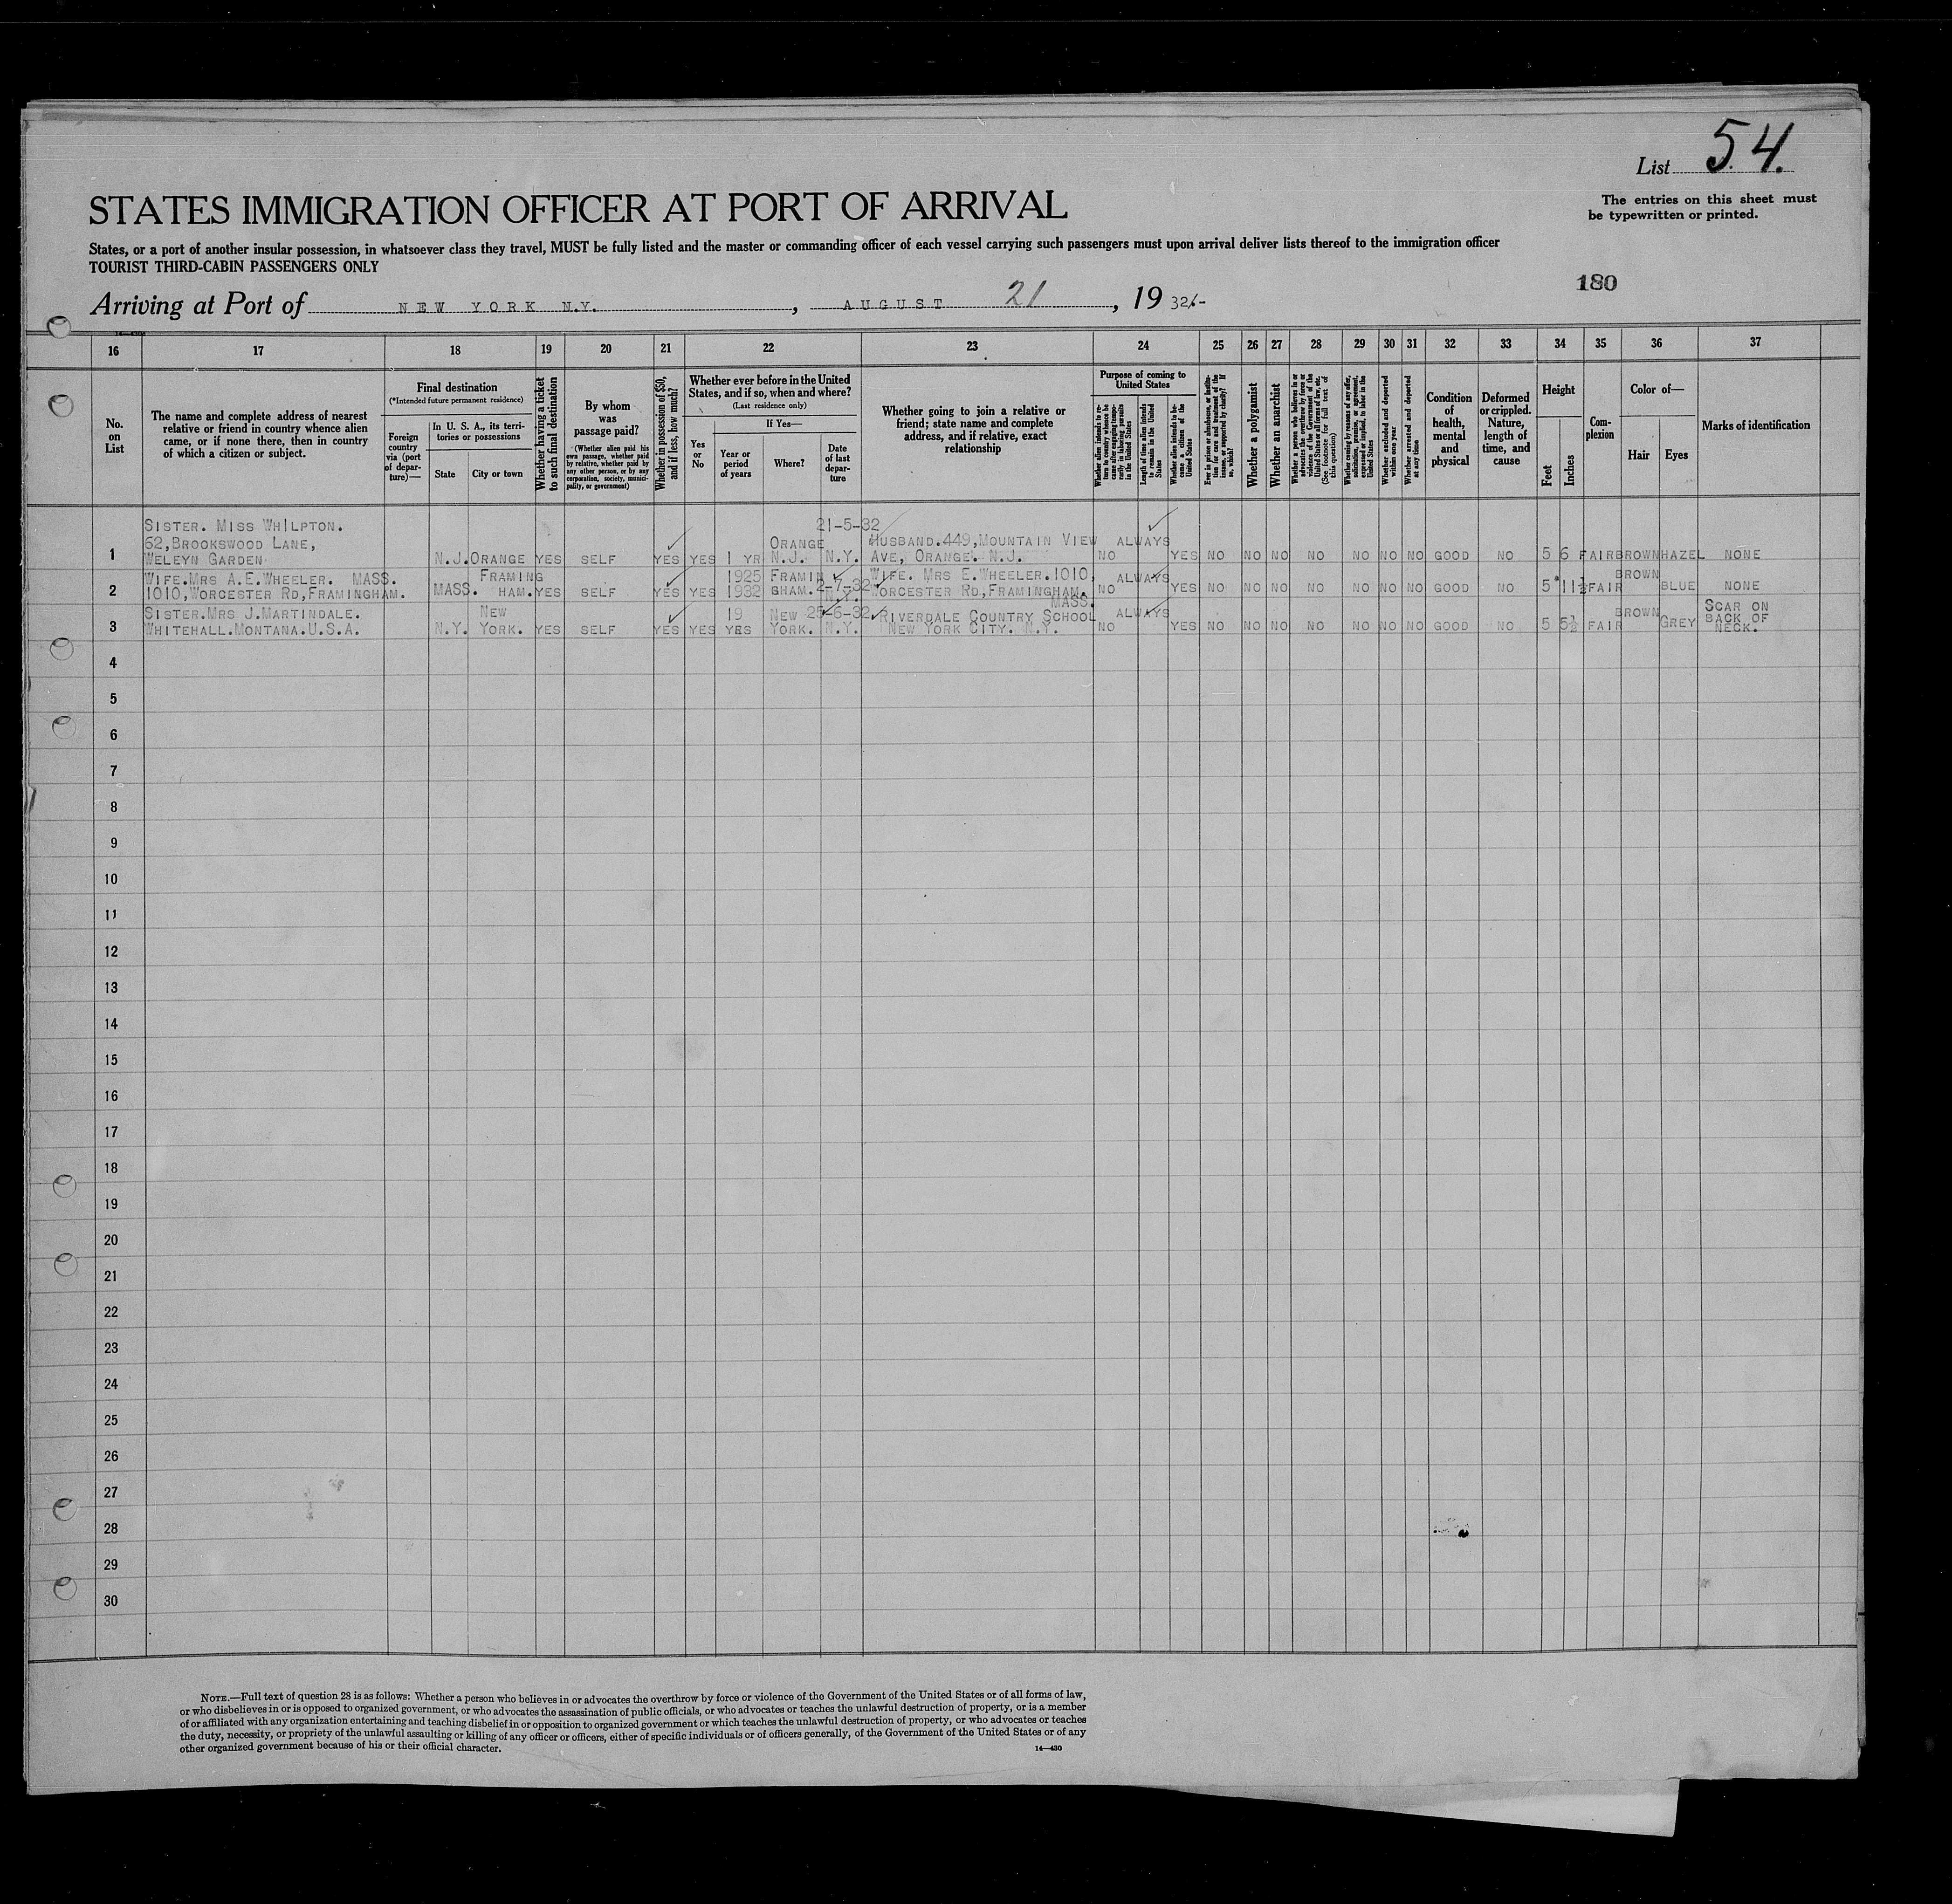 List 54.
The entries on this sheet must
be typewritten or printed.
STATES IMMIGRATION OFFICER AT PORT OF ARRIVAL
States, or a port of another insular possession, in whatsoever class they travel, MUST be fully listed and the master or commanding officer of each vessel carrying such passengers must upon arrival deliver lists thereof to the immigration officer
TOURIST THIRD-CABIN PASSENGERS ONLY
180
Arriving at Port of NEW YORK N.Y. , AUGUST 21 , 19 32
16 17 18 19 20 21 22 23 24 25 26 27 28 29 30 31 32 33 34 35 36 37
No. on List
The name and complete address of nearest
relative or friend in country whence alien
came, or if none there, then in country
of which a citizen or subject.
Final destination
(*Intended future permanent residence)
Foreign
country
via (port
of depar-
ture)—
In U. S. A., its terri-
tories or possessions
State
City or town
Whether having a ticket
to such final destination
By whom
was
passage paid?
(Whether alien paid his
own passage, whether paid
by relative, whether paid by
any other person, or by any
corporation, society, munici-
pality, or government)
Whether in possession of $50,
and if less, how much?
Whether ever before in the United
States, and if so, when and where?
(Last residence only)
Yes
or
No
If Yes—
Year or
period
of years
Where?
Date
of last
depar-
ture
Whether going to join a relative or
friend; state name and complete
address, and if relative, exact
relationship
Purpose of coming to
United States
Whether alien intends to re-
turn to country whence he
came after engaging tempo-
rarily in laboring pursuits
in the United States
Length of time alien intends
to remain in the United
States
Whether alien intends to be-
come a citizen of the
United States
Ever in prison or almshouse, or institu-
tion for care and treatment of the
insane, or supported by charity? If
so, which?
Whether a polygamist
Whether an anarchist
Whether a person who believes in or
advocates the overthrow by force or
violence of the Government of the
United States or all forms of law, etc.
(See footnote for full text of
this question)
Whether coming by reason of any offer,
solicitation, promise, or agreement,
expressed or implied, to labor in the
United States
Whether excluded and deported
within one year
Whether arrested and deported
at any time
Condition
of
health,
mental
and
physical
Deformed
or crippled.
Nature,
length of
time, and
cause
Height
Feet
Inches
Com-
plexion
Color of—
Hair
Eyes
Marks of identification
SISTER. MISS WHILPTON. 21-5-32
62,BROOKSWOOD LANE, ORANGE HUSBAND.449,MOUNTAIN VIEW ALWAYS
1 WELEYN GARDEN. N.J. ORANGE YES SELF YES YES 1 YR N.J. N.Y. AVE, ORANGE. N.J. NO YES NO NO NO NO NO NO NO GOOD NO 5 6 FAIR BROWN HAZEL NONE
WIFE.MRS A.E.WHEELER. MASS. FRAMING 1925 FRAMIN WIFE. MRS E.WHEELER.1010, ALWAYS BROWN
2 1010,WORCESTER RD,FRAMINGHAM. MASS. HAM. YES SELF YES YES 1932 GHAM. 2-7-32 N.Y. WORCESTER RD,FRAMINGHAM. NO YES NO NO NO NO NO NO NO GOOD NO 5 11½ FAIR BLUE NONE
MASS.
SISTER.MRS J.MARTINDALE. NEW 19 NEW 25-6-32 RIVERDALE COUNTRY SCHOOL ALWAYS BROWN SCAR ON
3 WHITEHALL.MONTANA.U.S.A. N.Y. YORK. YES SELF YES YES YRS YORK. N.Y. NEW YORK CITY. N.Y. NO YES NO NO NO NO NO NO NO GOOD NO 5 5½ FAIR GREY BACK OF
NECK.
4
5
6
7
8
9
10
11
12
13
14
15
16
17
18
19
20
21
22
23
24
25
26
27
28
29
30
NOTE.—Full text of question 28 is as follows: Whether a person who believes in or advocates the overthrow by force or violence of the Government of the United States or of all forms of law,
or who disbelieves in or is opposed to organized government, or who advocates the assassination of public officials, or who advocates or teaches the unlawful destruction of property, or is a member
of or affiliated with any organization entertaining and teaching disbelief in or opposition to organized government or which teaches the unlawful destruction of property, or who advocates or teaches
the duty, necessity, or propriety of the unlawful assaulting or killing of any officer or officers, either of specific individuals or of officers generally, of the Government of the United States or of any
other organized government because of his or their official character.
14—430